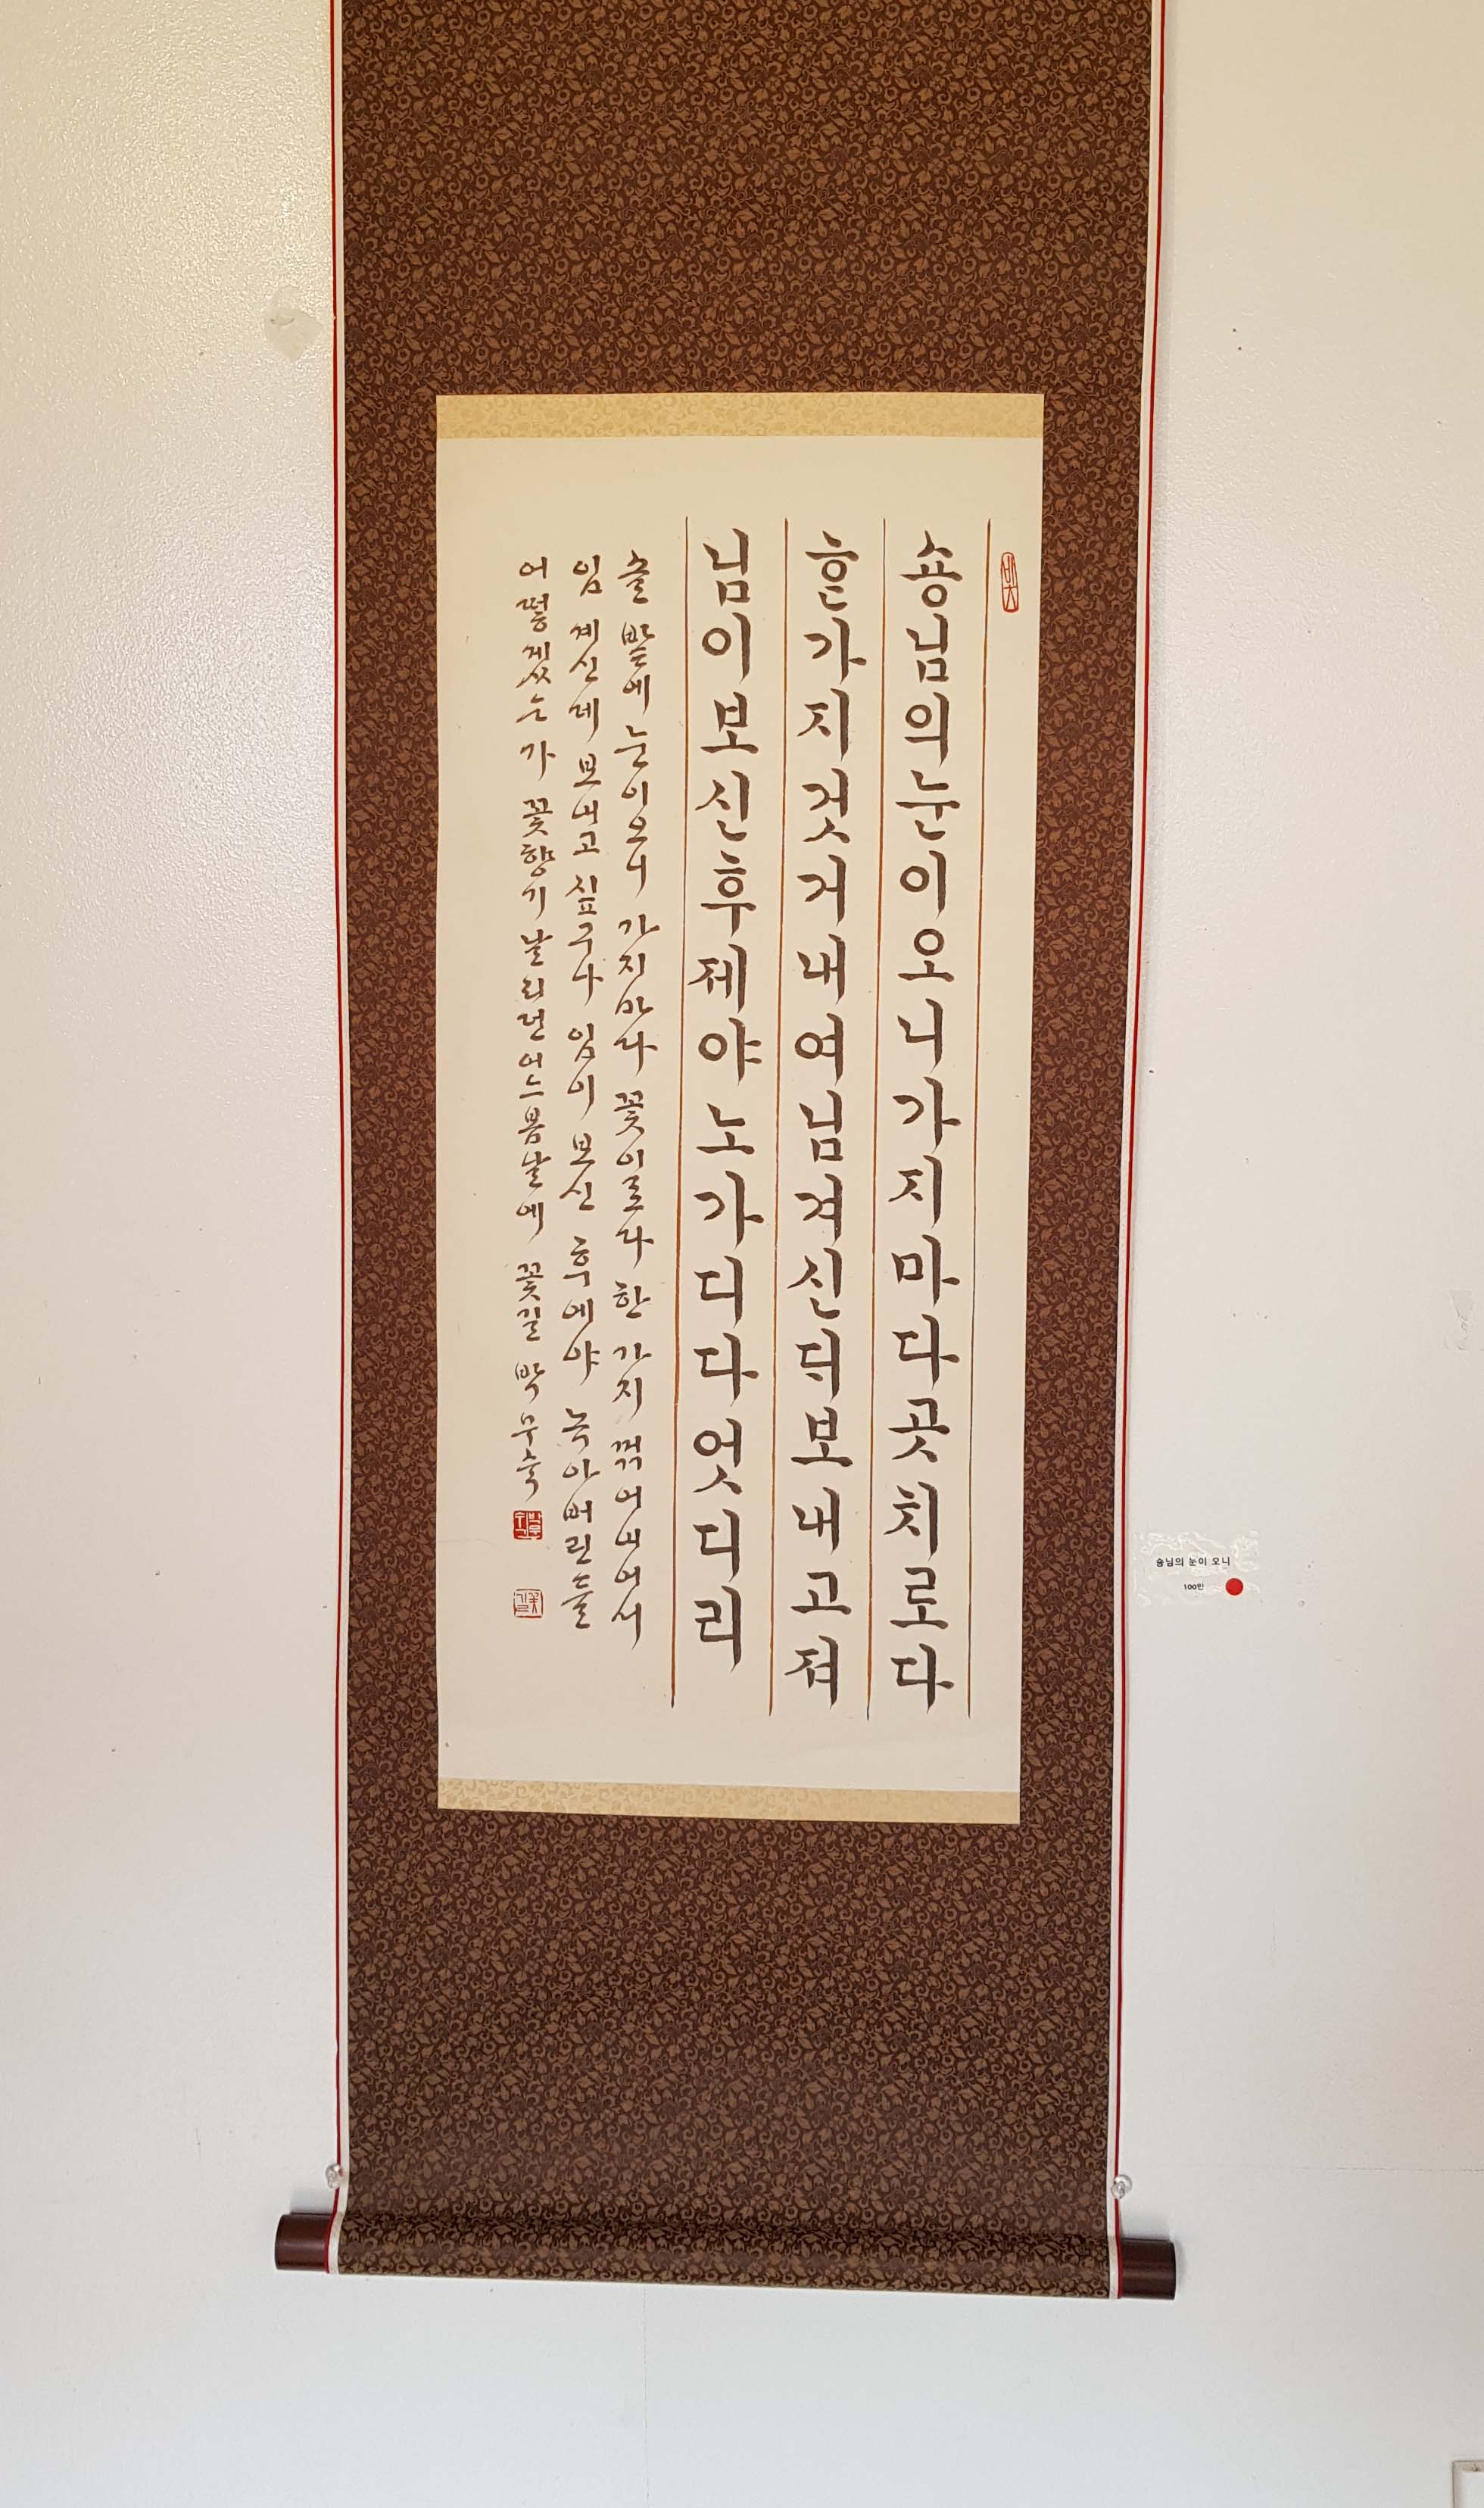 숑님의눈이오니가지마다곳치로다
흔가지것거내여님겨신듸보내고져
님이보신후제야노가디다엇디리
솔 밭에 눈이오니 가지마다 꽃이로다 한 가지 꺾어내어서
임 계신데 보내고 싶구나 임이 보신 후에야 녹아버린들
어떻겠는가 꽃향기 날리던 어느 봄날에 꽃길 박무숙
박무숙
꽃길
숑님의 눈이 오니
100만